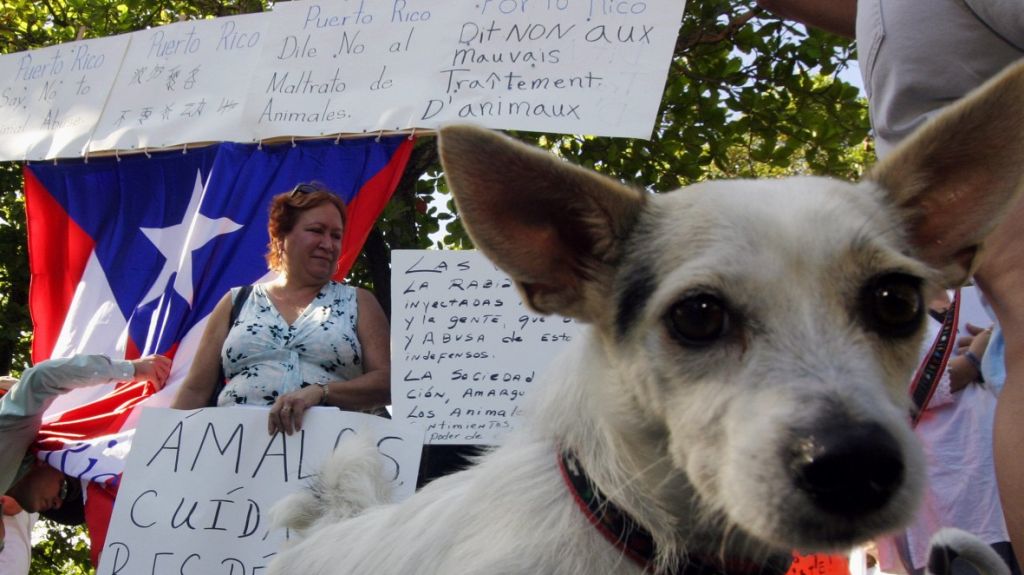 Puerto Rico
Say, No to
Animal Abuse.
Puerto Rico
Puerto Rico
Dile No al
Maltrato de
Animales.
Porto Rico
Dit NON aux
mauvais
Traîtement
D'animaux
LAS
LA RABIA
inyectadas
y la gente, que
y ABUSA de esto
indefensos.
LA SOCIEDAD
ción, Amargu
Los Animale
ntimientos,
poder de
ÁMALOS,
CUÍD
RESPÉ